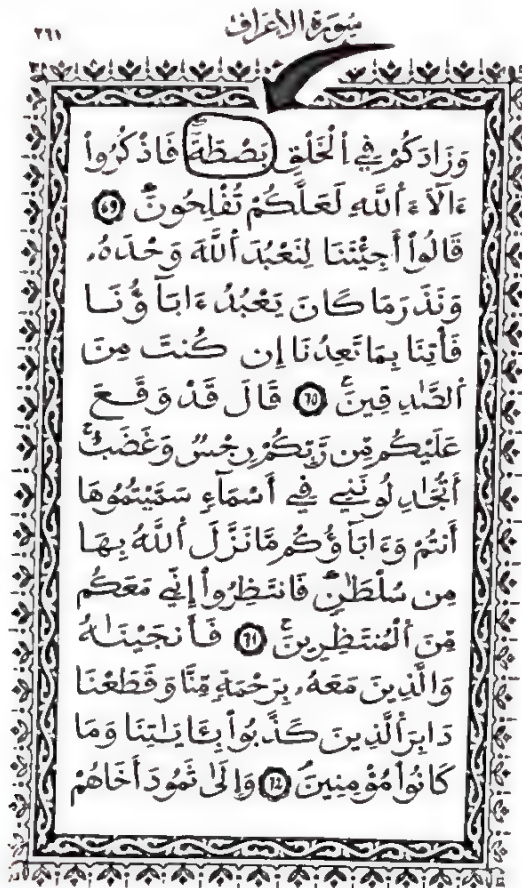 ٢٦١
سُورَةُ الأَعْرَاف
وَزَادَكُمْ فِي اِ۬لْخَلْقِ بَصْۜطَةٗۖ فَاذْكُرُوٓاْ
ءَالَآءَ اَ۬للَّهِ لَعَلَّكُمْ تُفْلِحُونَۖ ٦٩
قَالُوٓاْ أَجِئْتَنَا لِنَعْبُدَ اَ۬للَّهَ وَحْدَهُۥ
وَنَذَرَ مَا كَانَ يَعْبُدُ ءَابَآؤُنَا
فَأْتِنَا بِمَا تَعِدُنَآ إِن كُنتَ مِنَ
اَ۬لصَّٰدِقِينَۖ ٦٥ قَالَ قَدْ وَقَعَ
عَلَيْكُم مِّن رَّبِّكُمْ رِجْسٞ وَغَضَبٌۖ
اَتُجَٰدِلُونَنِي فِيٓ أَسْمَآءٖ سَمَّيْتُمُوهَآ
أَنتُمْ وَءَابَآؤُكُم مَّا نَزَّلَ اَ۬للَّهُ بِهَا
مِن سُلْطَٰنٖۖ فَانتَظِرُوٓاْ إِنِّي مَعَكُم
مِّنَ اَ۬لْمُنتَظِرِينَۖ ٦٦ فَأَنجَيْنَٰهُ
وَالَّذِينَ مَعَهُۥ بِرَحْمَةٖ مِّنَّا وَقَطَعْنَا
دَابِرَ اَ۬لَّذِينَ كَذَّبُواْ بِـَٔايَٰتِنَا وَمَا
كَانُواْ مُؤْمِنِينَۖ ٦٧ وَإِلَىٰ ثَمُودَ أَخَاهُمْ